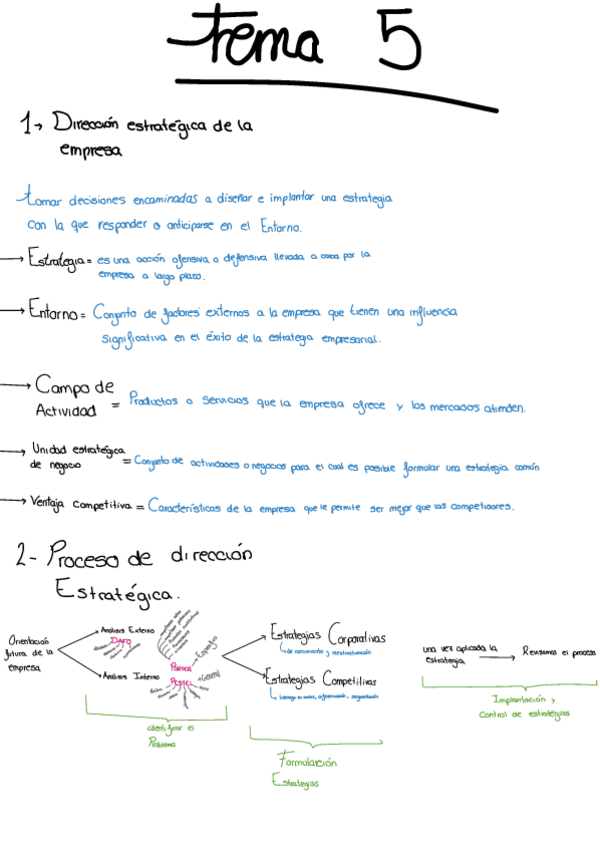 tema 5
1→ Dirección estratégica de la
empresa
tomar decisiones encaminadas a diseñar e implantar una estrategia
con la que responder o anticiparse en el Entorno.
→ Estrategia = es una acción ofensiva o defensiva llevada a cabo por la
empresa a largo plazo.
→ Entorno = Conjunto de factores externos a la empresa que tienen una influencia
significativa en el éxito de la estratega empresarial.
→ Campo de
Actividad = Productos o servicios que la empresa ofrece y los mercados atienden.
→ Unidad estratégica
de negocio = Conjunto de actividades o negocios para el cual es posible formular una estrategia común
→ Ventaja competitiva = Características de la empresa que le permite ser mejor que los competidores.
2- Proceso de dirección
Estratégica.
Orientación
futura de la
empresa
Análisis Externo
DAFO
Análisis Interno
Porter → Específico
Pestel → General
identificar el
Problema
Estrategias Corporativas
de crecimiento y reestructuración
Estrategias Competitivas
Formulación
Estrategias
una vez aplicada la
estrategia → Revisamos el proceso
Implantación y
Control de estrategias